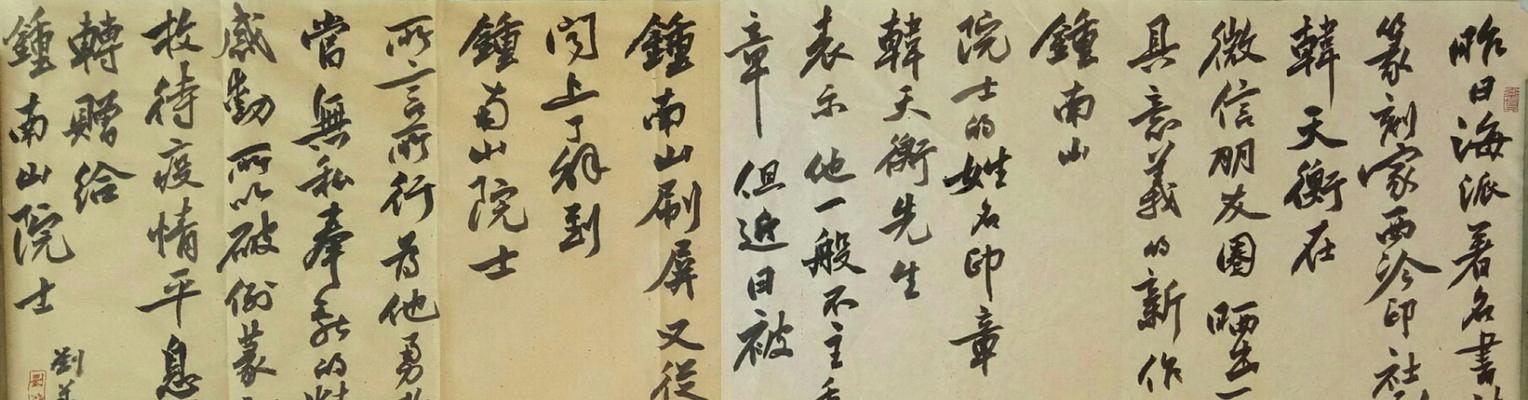 昨日海派著名書
篆刻家西泠印社
韓天衡在
微信朋友圈晒出一
具意義的新作
鍾南山
院士的姓名印章
韓天衡先生
表示他一般不主
章但近日被
鍾南山刷屏又從
闻上了解到
鍾南山院士
所言所行為他勇
當無私奉献的
感動所以破例篆
枚待疫情平息
轉贈給
鍾南山院士
劉